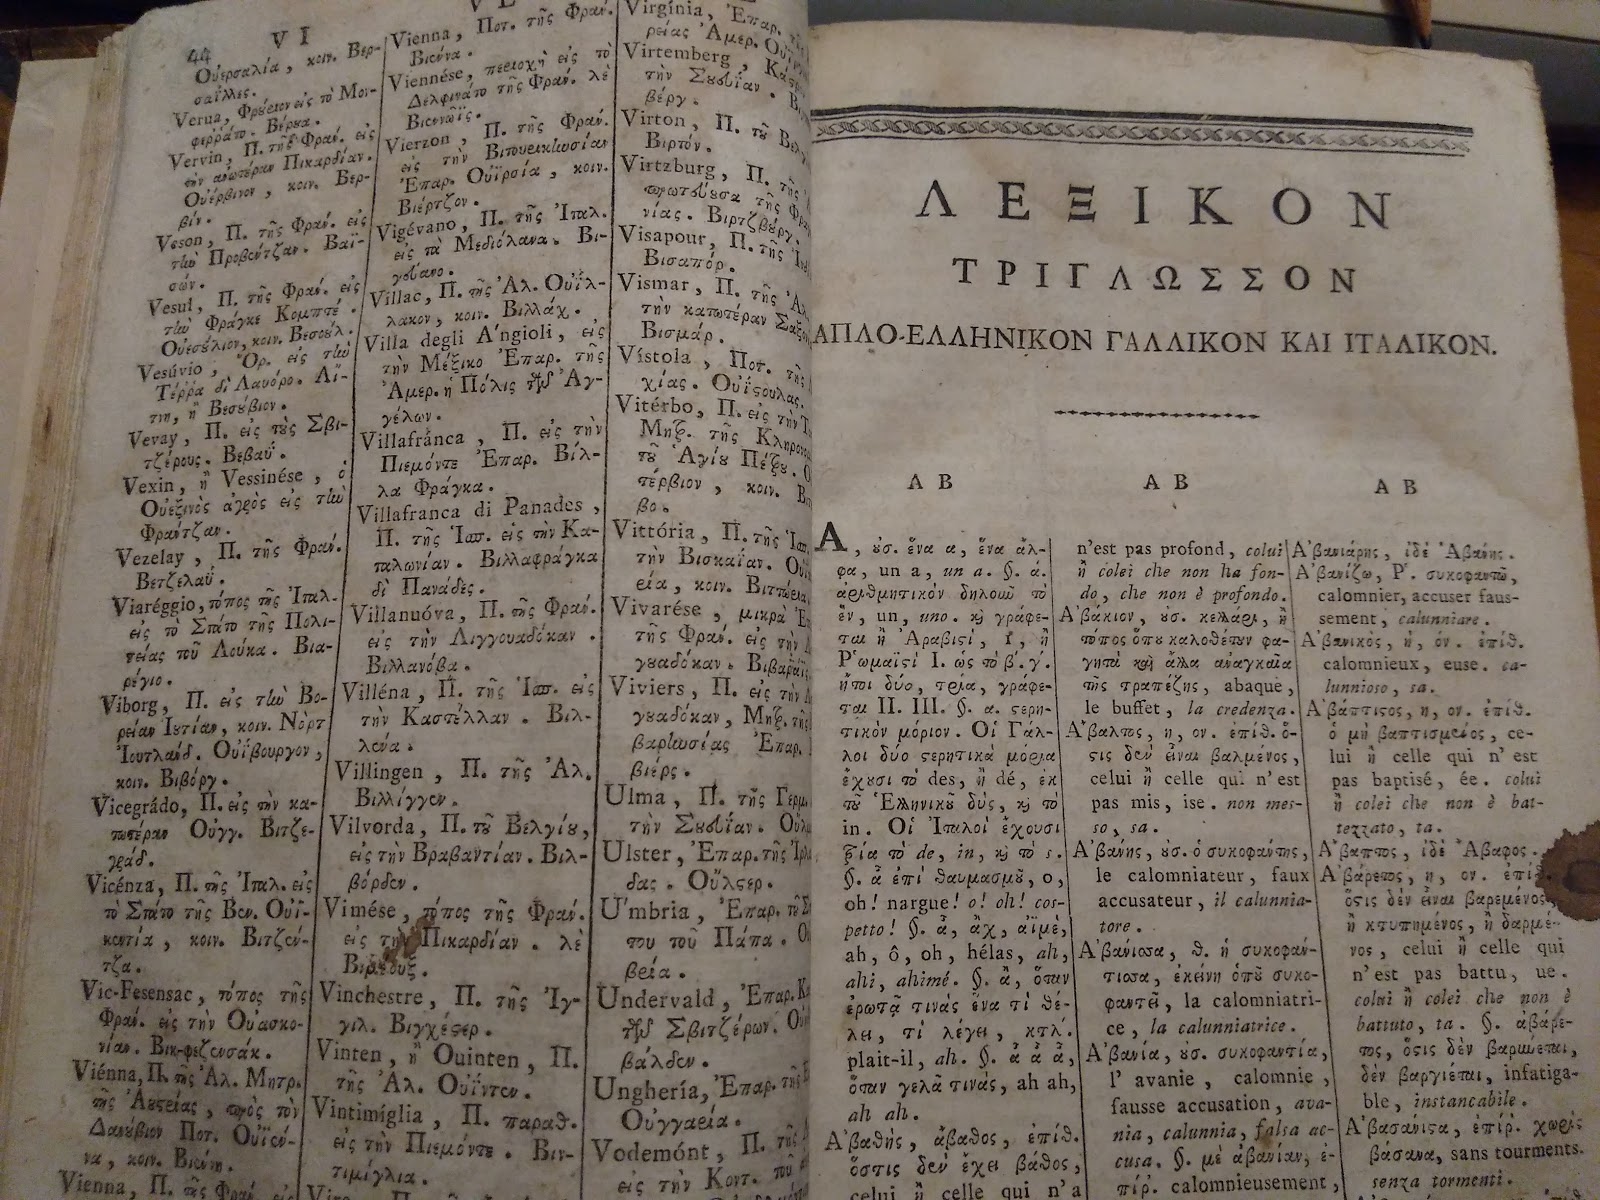 44
V I
Οὐερσαλία, κοιν. Βερ-
σαΐλλες.
Verua, Φρούριον εἰς τὸ Μον-
φεῤῥάτο. Βέρουα.
Vervin, Π. τῆς Φραν. εἰς
τὴν ἀνωτέραν Πικαρδίαν.
Οὐέρβινον, κοιν. Βερ-
βίν.
Veson, Π. τῆς Φραν. εἰς
τὴν Προβέντζαν. Βαϊ-
σών.
Vesul, Π. τῆς Φραν. εἰς
τὴν Φράγκε Κομπτέ.
Οὐεσούλιον, κοιν. Βεσούλ.
Vesúvio, Ὄρ. εἰς τὴν
Τέρρα δὶ Λαυόρο. Αἴ-
τνη, ἢ Βεσούβιον.
Vevay, Π. εἰς τοὺς Σβι-
τζέρους. Βεβαΰ.
Vexin, ἢ Vessinése, ὁ
Οὐεξινὸς ἀγρὸς εἰς τὴν
Φράντζαν.
Vezelay, Π. τῆς Φραν.
Βετζελαΰ.
Viaréggio, τόπος τῆς Ἰταλ.
εἰς τὸ Στάτο τῆς Πολι-
τείας τοῦ Λούκα. Βια-
ρέγιο.
Viborg, Π. εἰς τὴν Βο-
ρείαν Ἰυτίαν, κοιν. Νὸρτ
Ἰουτλάνδ. Οὐίβουργον,
κοιν. Βιβόργ.
Vicegrádo, Π. εἰς τὴν κα-
τωτέραν Οὐγγ. Βιτζε-
γράδ.
Vicénza, Π. τῆς Ἰταλ. εἰς
τὸ Στάτο τῆς Βεν. Οὐϊ-
κεντία, κοιν. Βιτζέν-
τζα.
Vic-Fesensac, τόπος τῆς
Φραν. εἰς τὴν Οὐασκο-
νίαν. Βικ-φεζενσάκ.
Viénna, Π. τῆς Ἀλ. Μητρ.
τῆς Ἀυστρίας, πρὸς τὸν
Δανούβιον Ποτ. Οὐϊέν-
να, κοιν. Βιέννη.
Vienna, Π. τῆς Φραν. εἰς
Vienna, Ποτ. τῆς Φραν.
Βιέννα.
Viennése, περιοχὴ εἰς τὸ
Δελφινάτο τῆς Φραν. λὲ
Βιενναΐς.
Vierzon, Π. τῆς Φραν.
εἰς τὴν
Ἐπαρ. Οὐϊρσία, κοιν.
Βιέρτζον.
Vigévano, Π. τῆς Ἰταλ.
εἰς τὰ Μεδιόλανα. Βι-
γέβανο.
Villac, Π. τῆς Ἀλ. Οὐΐλ-
λακον, κοιν. Βιλλάχ.
Villa degli A'ngioli, εἰς
τὴν Μέξικο Ἐπαρ. τῆς
Ἀμερ. ἡ Πόλις τῶν Ἀγ-
γέλων.
Villafránca, Π. εἰς τὴν
Πιεμόντε Ἐπαρ. Βίλ-
λα Φράγκα.
Villafranca di Panades,
Π. τῆς Ἱσπ. εἰς τὴν Κα-
ταλωνίαν. Βιλλαφράγκα
δὶ Παναδές.
Villanuóva, Π. τῆς Φραν.
εἰς τὴν Λιγγουαδόκαν.
Βιλλανόβα.
Villéna, Π. τῆς Ἱσπ. εἰς
τὴν Καστέλλαν. Βιλ-
λένα.
Villingen, Π. τῆς Ἀλ.
Βιλλίγγεν.
Vilvorda, Π. τοῦ Βελγίου,
εἰς τὴν Βραβαντίαν. Βιλ-
βόρδεν.
Vimése, τόπος τῆς Φραν.
εἰς τὴν Πικαρδίαν. λὲ
Vinchestre, Π. τῆς Ἰγ-
γιλ. Βιγχέστερ.
Vinten, ἢ Ouinten, Π.
τῆς Ἀλ. Οὐΐντεν.
Vintimíglia, Π. παραθ.
εἰς τὴν Πιεμόντε. Βιν-
τιμίγλια.
Virgínia, Ἐπαρ.
ρείας Ἀμερ.
Virtemberg,
τὴν Σουεβίαν.
βέργ.
Virton, Π. τοῦ
Βιρτόν.
Virtzburg, Π. τῆς
πρωτεύουσα τῆς
νίας. Βιρτζβέργ.
Visapour, Π. τῆς
Βισαπόρ.
Vismar, Π. τῆς
τὴν κατωτέραν
Βισμάρ.
Vístola, Ποτ. τῆς
χίας. Οὐΐστουλας.
Vitérbo, Π. εἰς τὴν
Μητρ. τῆς
τοῦ Ἁγίου Πέτρου.
τέρβιον, κοιν.
βο.
Vittória, Π. τῆς
τὴν Βισκαΐαν.
ρία, κοιν.
Vivarése, μικρὰ
τῆς Φραν. εἰς τὴν
γουαδόκαν.
Viviers, Π. εἰς τὴν
γουαδόκαν, Μητρ. τῆς
Ἐπαρ.
βιέρς.
Ulma, Π. τῆς
τὴν Σουεβίαν.
Ulster, Ἐπαρ. τῆς
δας. Οὔλστερ.
U'mbria, Ἐπαρ. τοῦ
του τοῦ Πάπα.
βρία.
Undervald, Ἐπαρ.
τῶν Σβιτζέρων.
βάλδεν.
Unghería, Ἐπαρ. τῆς
Οὐγγαρία.
Vodemónt, Π. τῆς
εἰς τὴν Κοντ. τοῦ
ΛΕΞΙΚΟΝ
ΤΡΙΓΛΩΣΣΟΝ
ΑΠΛΟ-ΕΛΛΗΝΙΚΟΝ ΓΑΛΛΙΚΟΝ ΚΑΙ ΙΤΑΛΙΚΟΝ.
Α Β
Α Β
Α Β
Α, οὐσ. ἕνα α, ἕνα ἄλ-
φα, un a, un a. §. ά.
ἀριθμητικὸν δηλοῖ τὸ
ἕν, un, uno. καὶ γράφε-
ται ἢ Ἀραβιστί, 1, ἢ
Ρ'ωμαϊστί I. ὡς τὸ β'. γ'.
ἤτοι δύο, τρία, γράφε-
ται II. III. §. α. στερη-
τικὸν μόριον. Οἱ Γάλ-
λοι δύο στερητικὰ μόρια
ἔχουσι τὸ des, ἢ dé, ἐκ
τοῦ Ἑλληνικοῦ δὺς, καὶ τὸ
in. Οἱ Ἰταλοὶ ἔχουσι
τρία τὸ de, in, καὶ τὸ s.
§. ἆ ἐπὶ θαυμασμοῦ, o,
oh! nargue! o! oh! cos-
petto! §. ἆ, ἂχ, αἴμὲ,
ah, ô, oh, hélas, ah,
ahi, ahimé. §. ἂ, ὅταν
ἐρωτᾷ τινὰς ἕνα τί θέ-
λει, τί λέγει, κτλ.
plait-il, ah. §. ἆ ἆ ἆ,
ὅταν γελᾷ τινὰς, ah ah,
ah ah.
Α'βαθὴς, ἄβαθος, ἐπίθ.
ὅστις δὲν ἔχει βάθος,
celui ἢ celle qui n'a
n'est pas profond, colui
ἢ colei che non ha fon-
do, che non è profondo.
Α'βάκιον, οὐσ. κελλάρι, ἢ
τόπος ὅπου καλοθέτουν φα-
γητὰ καὶ ἄλλα ἀναγκαῖα
τῆς τραπέζης, abaque,
le buffet, la credenza.
Α'βαλτος, η, ον. ἐπίθ. ὅ-
στις δὲν εἶναι βαλμένος,
celui ἢ celle qui n'est
pas mis, ise. non mes-
so, sa.
Α'βάνης, οὐσ. ὁ συκοφάντης,
le calomniateur, faux
accusateur, il calunnia-
tore.
Α'βάνισσα, θ. ἡ συκοφάν-
τισσα, ἐκείνη ὁποῦ συκο-
φαντεῖ, la calomniatri-
ce, la calunniatrice.
Α'βανία, οὐσ. συκοφαντία,
l' avanie, calomnie,
fausse accusation, ava-
nia, calunnia, falsa ac-
cusa. §. μὲ ἀβανίαν, ἐ-
πίῤ. calomnieusement,
Α'βανιάρης, ἰδὲ Ἀβάνης.
Α'βανίζω, Ρ'. συκοφαντῶ,
calomnier, accuser faus-
sement, calunniare.
Α'βανικὸς, ή, όν. ἐπίθ.
calomnieux, euse. ca-
lunnioso, sa.
Α'βάπτιστος, η, ον. ἐπίθ.
ὁ μὴ βαπτισμένος, ce-
lui ἢ celle qui n'est
pas baptisé, ée. colui
ἢ colei che non è bat-
tezzato, ta.
Α'βαπτος, ἰδὲ Ἄβαφος.
Α'βάρετος, η, ον. ἐπίθ.
ὅστις δὲν εἶναι βαρεμένος,
ἢ κτυπημένος, ἢ δαρμέ-
νος, celui ἢ celle qui
n'est pas battu, ue.
colui ἢ colei che non è
battuto, ta. §. ἀβάρε-
τος, ὅστις δὲν βαρύνεται,
δὲν βαργιέται, infatiga-
ble, instancabile.
Α'βασάνιστα, ἐπίῤ. χωρὶς
βάσανα, sans tourments.
senza tormenti.